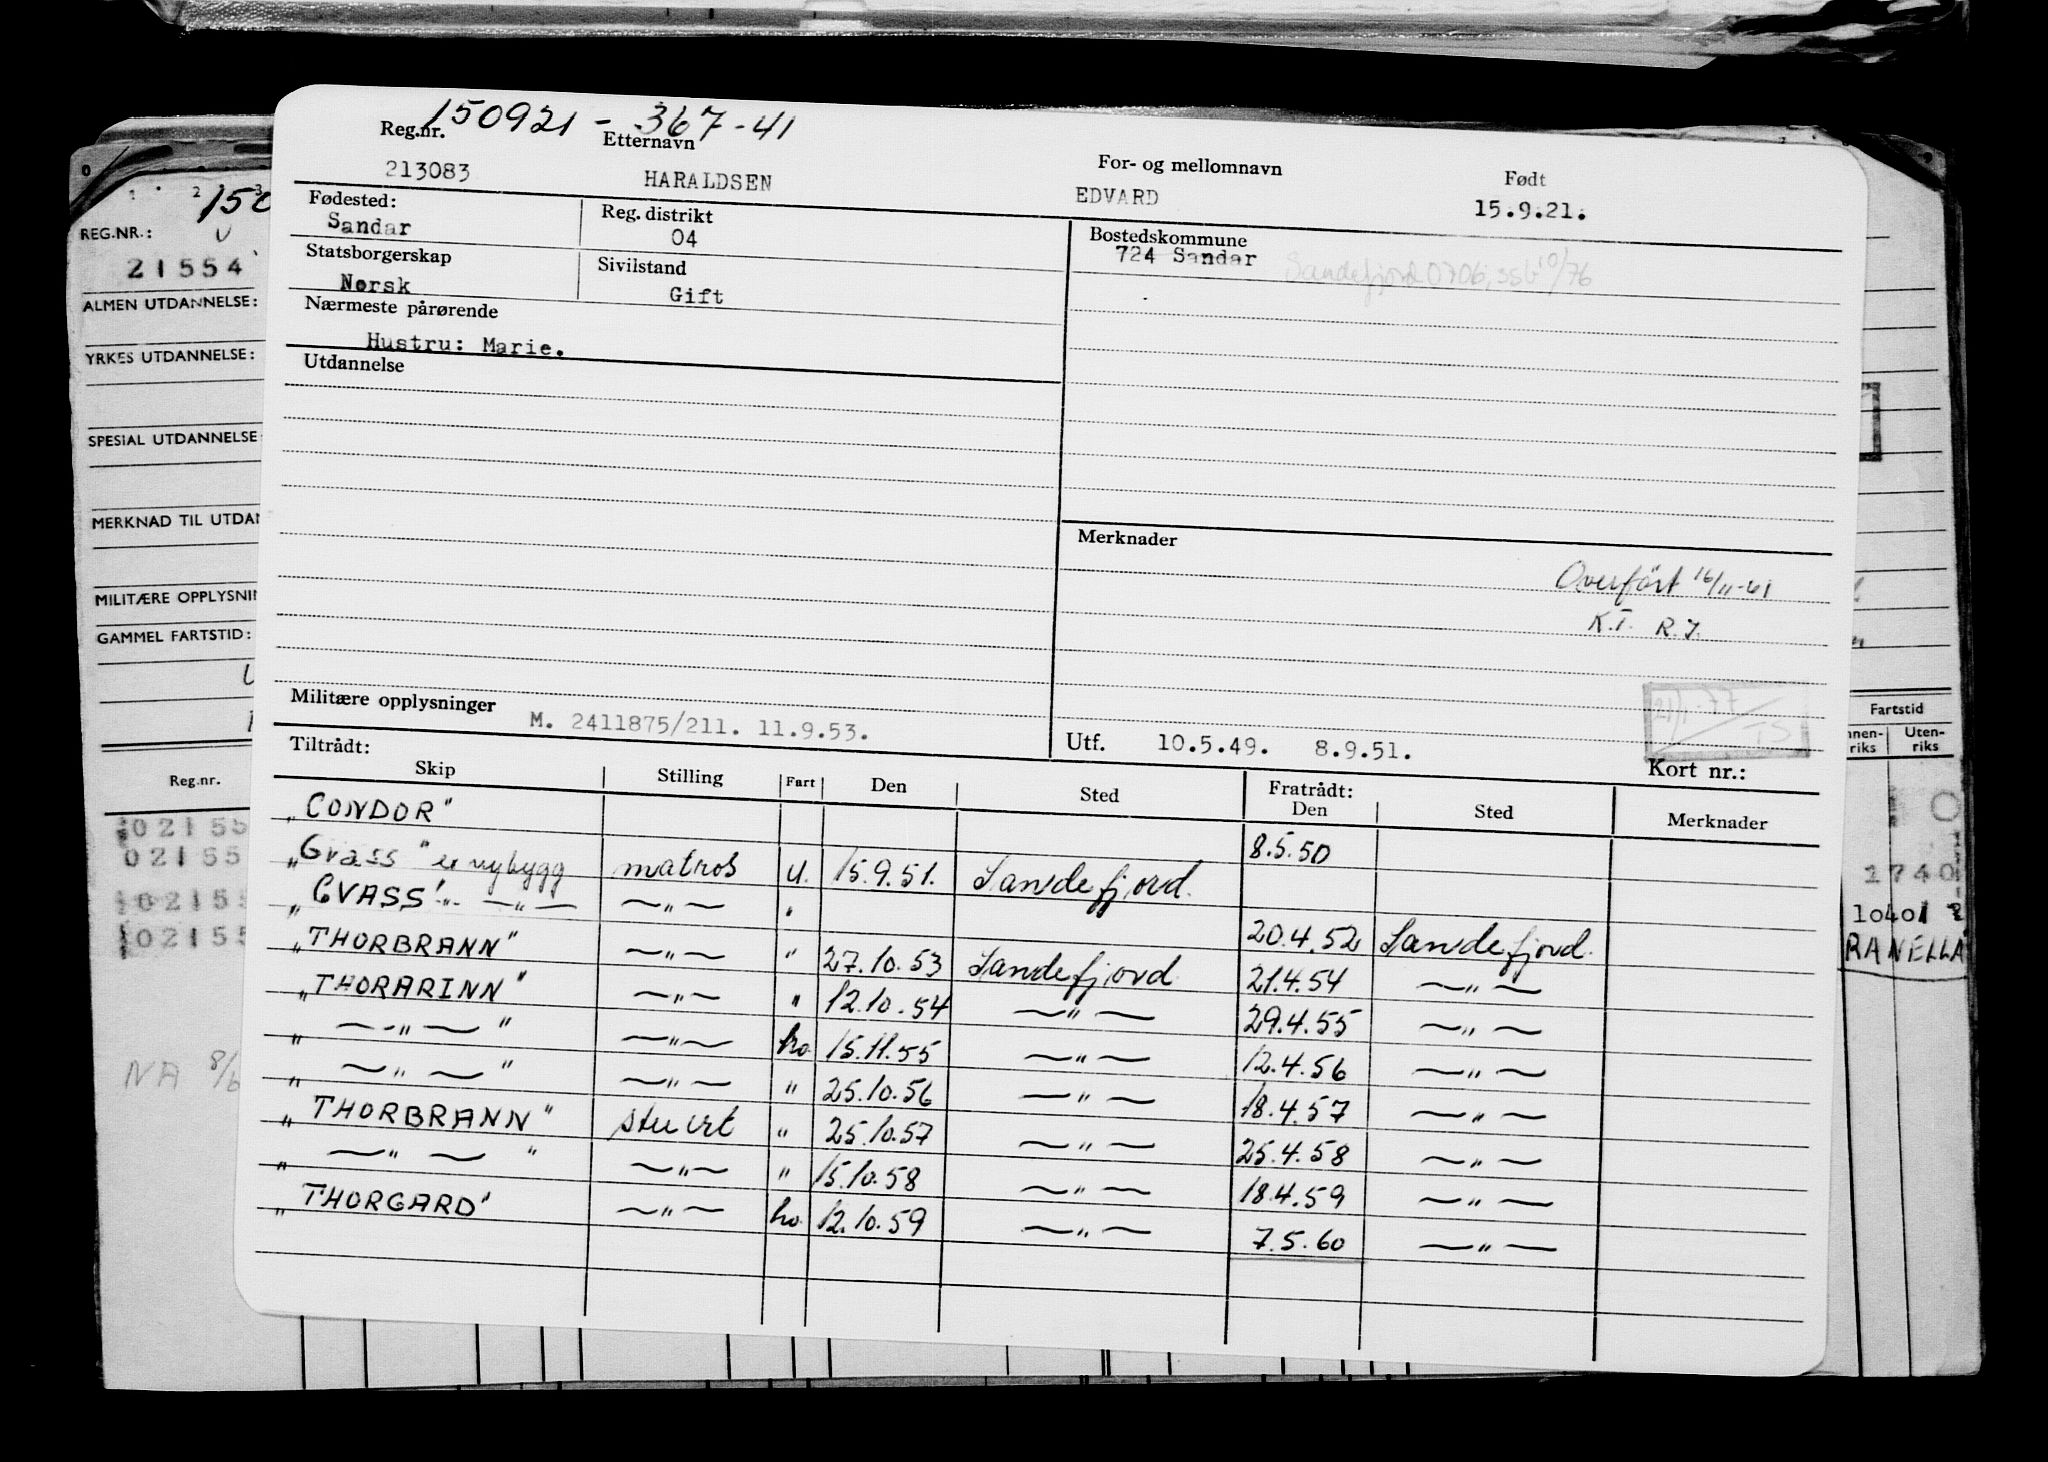 150921 - 367 - 41
Reg.nr. Etternavn For- og mellomnavn Født
213083 HARALDSEN EDVARD 15.9.21.
Fødested: Reg. distrikt Bostedskommune
Sandar 04 724 Sandar Sandefjord 0706, ssb 10/76
Statsborgerskap Sivilstand
Norsk Gift
Nærmeste pårørende
Hustru: Marie.
Utdannelse
Merknader
Overført 16/11-61
K.T. R.J.
Militære opplysninger M. 2411875/211. 11.9.53.
Utf. 10.5.49. 8.9.51.
Kort nr.:
Tiltrådt: Fratrådt:
Skip Stilling Fart Den Sted Den Sted Merknader
"CONDOR" 8.5.50
"Gvass" er nybygg matros U. 15.9.51. Sandefjord.
"GVASS" — " — — " — " 20.4.52 Sandefjord.
"THORBRANN" — " — " 27.10.53 Sandefjord 21.4.54 — " —
"THORARINN" — " — " 12.10.54 — " — 29.4.55 — " —
" — " — " — " — ho. 15.11.55 — " — 12.4.56 — " —
" — " — " — " — " 25.10.56 — " — 18.4.57 — " —
"THORBRANN" stuert " 25.10.57 — " — 25.4.58 — " —
" — " — " — " — " 15.10.58 — " — 18.4.59 — " —
"THORGARD" — " — ho. 12.10.59 — " — 7.5.60 — " —
REG.NR.:
21554
ALMEN UTDANNELSE:
YRKES UTDANNELSE:
SPESIAL UTDANNELSE
MERKNAD TIL UTDAN
MILITÆRE OPPLYSNIN
GAMMEL FARTSTID:
Reg.nr.
02155
02155
02155
02155
NA 8/6
Fartstid
Innen-riks Uten-riks
1740
10401
RANELLA